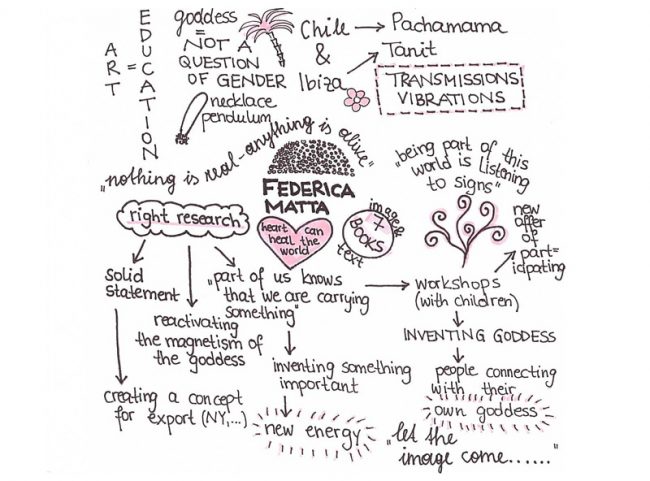 EDUCATION
ART
=
goddess
=
NOT A
QUESTION
OF GENDER
Chile
&
Ibiza
Pachamama
Tanit
TRANSMISSIONS
VIBRATIONS
necklace
pendulum
"nothing is real-anything is alive"
FEDERICA
MATTA
heart can
heal the
world
image &
X
BOOKS
text
"being part of this
world is listening
to signs"
new
offer
of
part=
icipating
right research
solid
statement
reactivating
the magnetism of
the goddess
"part of us knows
that we are carrying
something"
workshops
(with children)
INVENTING GODDESS
creating a concept
for export (NY,...)
inventing something
important
new energy
people connecting
with their
own goddess
"let the
image come......"